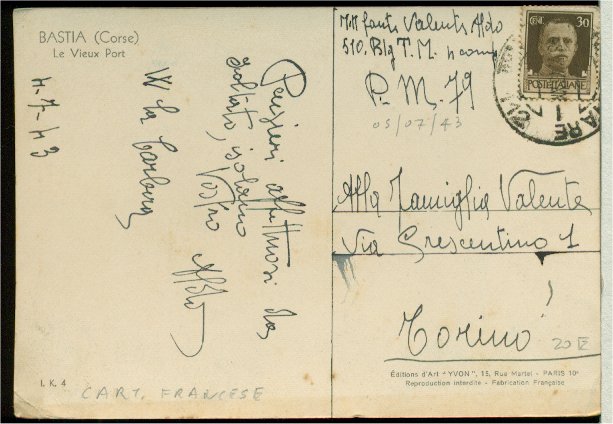 BASTIA (Corse)
Le Vieux Port
4-7-43
Pensieri affettuosi da
soldato, isolano
Vostro Aldo
W la
I. K. 4
CART. FRANCESE
Valente Aldo
510. Btg T. M.
P. M. 79
05/07/43
CENT. 30
POSTE ITALIANE
Alla Famiglia Valente
Via Crescentino 1
Torino
20 E
Éditions d'Art "YVON", 15, Rue Martel - PARIS 10e
Reproduction interdite - Fabrication Française